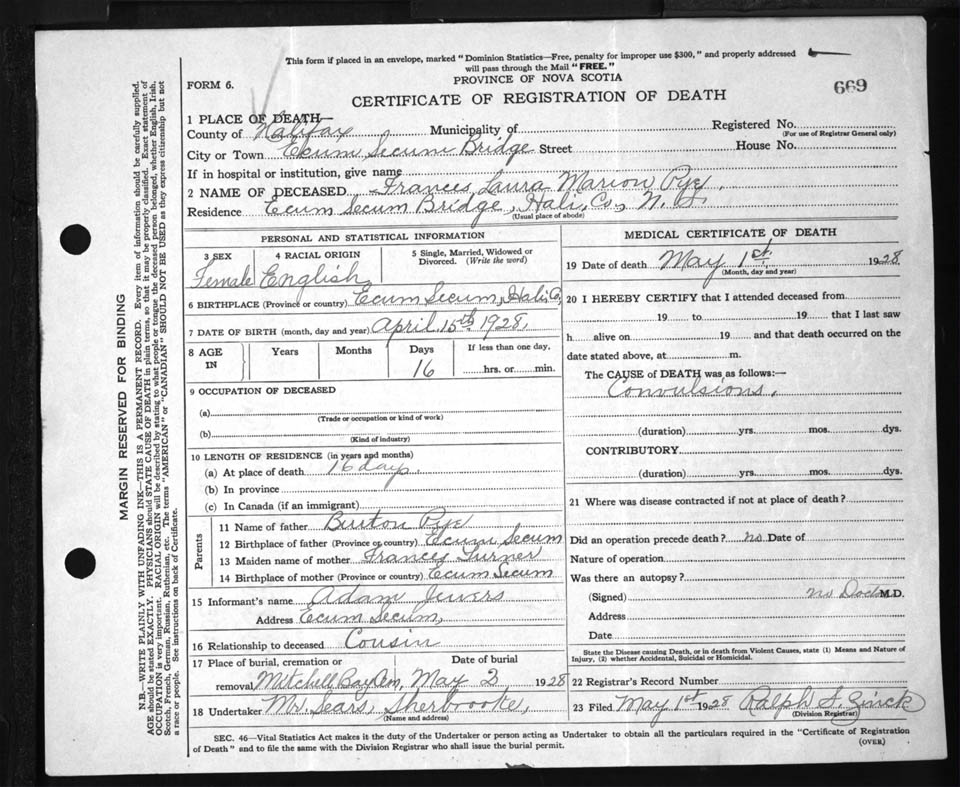 This form if placed in an envelope, marked "Dominion Statistics—Free, penalty for improper use $300," and properly addressed
will pass through the Mail "FREE."
FORM 6.
PROVINCE OF NOVA SCOTIA
669
CERTIFICATE OF REGISTRATION OF DEATH
1 PLACE OF DEATH—
County of Halifax Municipality of Registered No.
(For use of Registrar General only)
City or Town Ecum Secum Bridge Street House No.
If in hospital or institution, give name
2 NAME OF DECEASED Frances Laura Marion Pye.
Residence Ecum Secum Bridge, Hali. Co., N. S.
(Usual place of abode)
PERSONAL AND STATISTICAL INFORMATION
3 SEX 4 RACIAL ORIGIN 5 Single, Married, Widowed or
Divorced. (Write the word)
Female English
6 BIRTHPLACE (Province or country) Ecum Secum, Hali. Co.
7 DATE OF BIRTH (month, day and year) April 15th 1928,
8 AGE IN Years Months Days If less than one day,
16 hrs. or min.
9 OCCUPATION OF DECEASED
(a)
(Trade or occupation or kind of work)
(b)
(Kind of industry)
10 LENGTH OF RESIDENCE (in years and months)
(a) At place of death 16 days.
(b) In province
(c) In Canada (if an immigrant)
Parents
11 Name of father Burton Pye
12 Birthplace of father (Province or country) Ecum Secum
13 Maiden name of mother Frances Turner
14 Birthplace of mother (Province or country) Ecum Secum
15 Informant's name Adam Jewers
Address Ecum Secum,
16 Relationship to deceased Cousin
17 Place of burial, cremation or Date of burial
removal Mitchell Bay Cem, May 2 1928
18 Undertaker Mr. Sears, Sherbrooke,
(Name and address)
MEDICAL CERTIFICATE OF DEATH
19 Date of death May 1st. 1928
(Month, day and year)
20 I HEREBY CERTIFY that I attended deceased from
19 to 19 that I last saw
h alive on 19 and that death occurred on the
date stated above, at m.
The CAUSE of DEATH was as follows:—
Convulsions,
(duration) yrs. mos. dys.
CONTRIBUTORY
(duration) yrs. mos. dys.
21 Where was disease contracted if not at place of death?
Did an operation precede death? no. Date of
Nature of operation
Was there an autopsy?
(Signed) no Doctor M.D.
Address
Date
State the Disease causing Death, or in death from Violent Causes, state (1) Means and Nature of
Injury, (2) whether Accidental, Suicidal or Homicidal.
22 Registrar's Record Number
23 Filed May 1st 1928 Ralph S. Zinck
(Division Registrar)
SEC. 46—Vital Statistics Act makes it the duty of the Undertaker or person acting as Undertaker to obtain all the particulars required in the "Certificate of Registration
of Death" and to file the same with the Division Registrar who shall issue the burial permit.
(OVER)
MARGIN RESERVED FOR BINDING
N.B.—WRITE PLAINLY WITH UNFADING INK—THIS IS A PERMANENT RECORD. Every item of information should be carefully supplied.
AGE should be stated EXACTLY. PHYSICIANS should STATE CAUSE OF DEATH in plain terms, so that it may be properly classified. Exact statement of
OCCUPATION is very important. RACIAL ORIGIN will be described by stating to what people or tongue the deceased person belonged, whether English, Irish,
Scotch, French, German, Russian, Ruthenian, etc. The terms "AMERICAN" or "CANADIAN" SHOULD NOT BE USED as they express citizenship but not
a race or people. See instructions on back of Certificate.